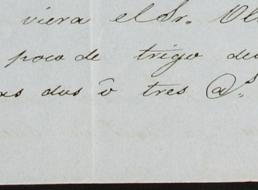 viera el Sr. Ol
poco de trigo de
as dos ô tres @.s